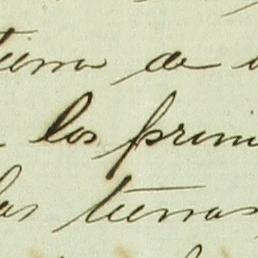 tierra de
los prim
las tierras